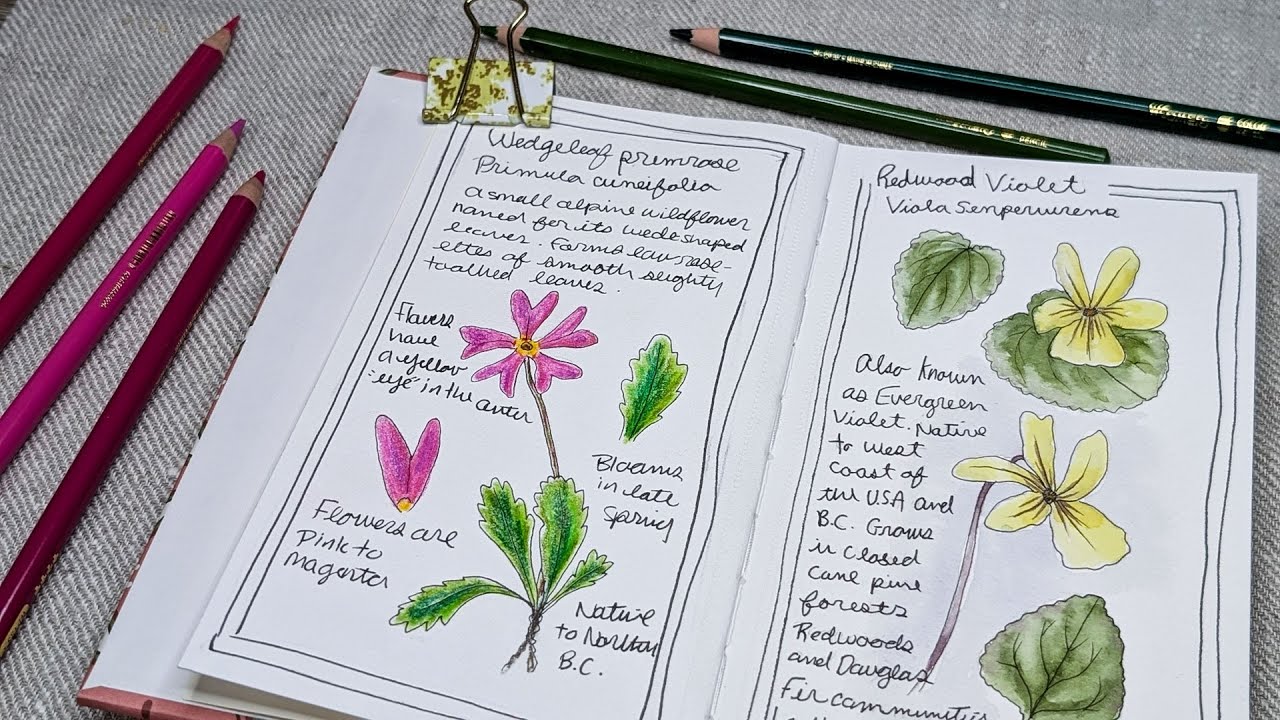 Wedgeleaf primrose
Primula cuneifolia
a small alpine wildflower
named for its wedeshaped
leaves. Forms low rose-
ettes of smooth slighty
toothed leaves.
Flowers
have
a yellow
"eye" in the center
Blooms
in late
spring
Flowers are
Pink to
magenta
Native
to Northern
B.C.
Redwood Violet
Viola Sempervirens
Also Known
as Evergreen
Violet. Native
to west
coast of
the USA and
B.C. Grows
in closed
cone pine
forests
Redwoods
and Douglas
Fir communities